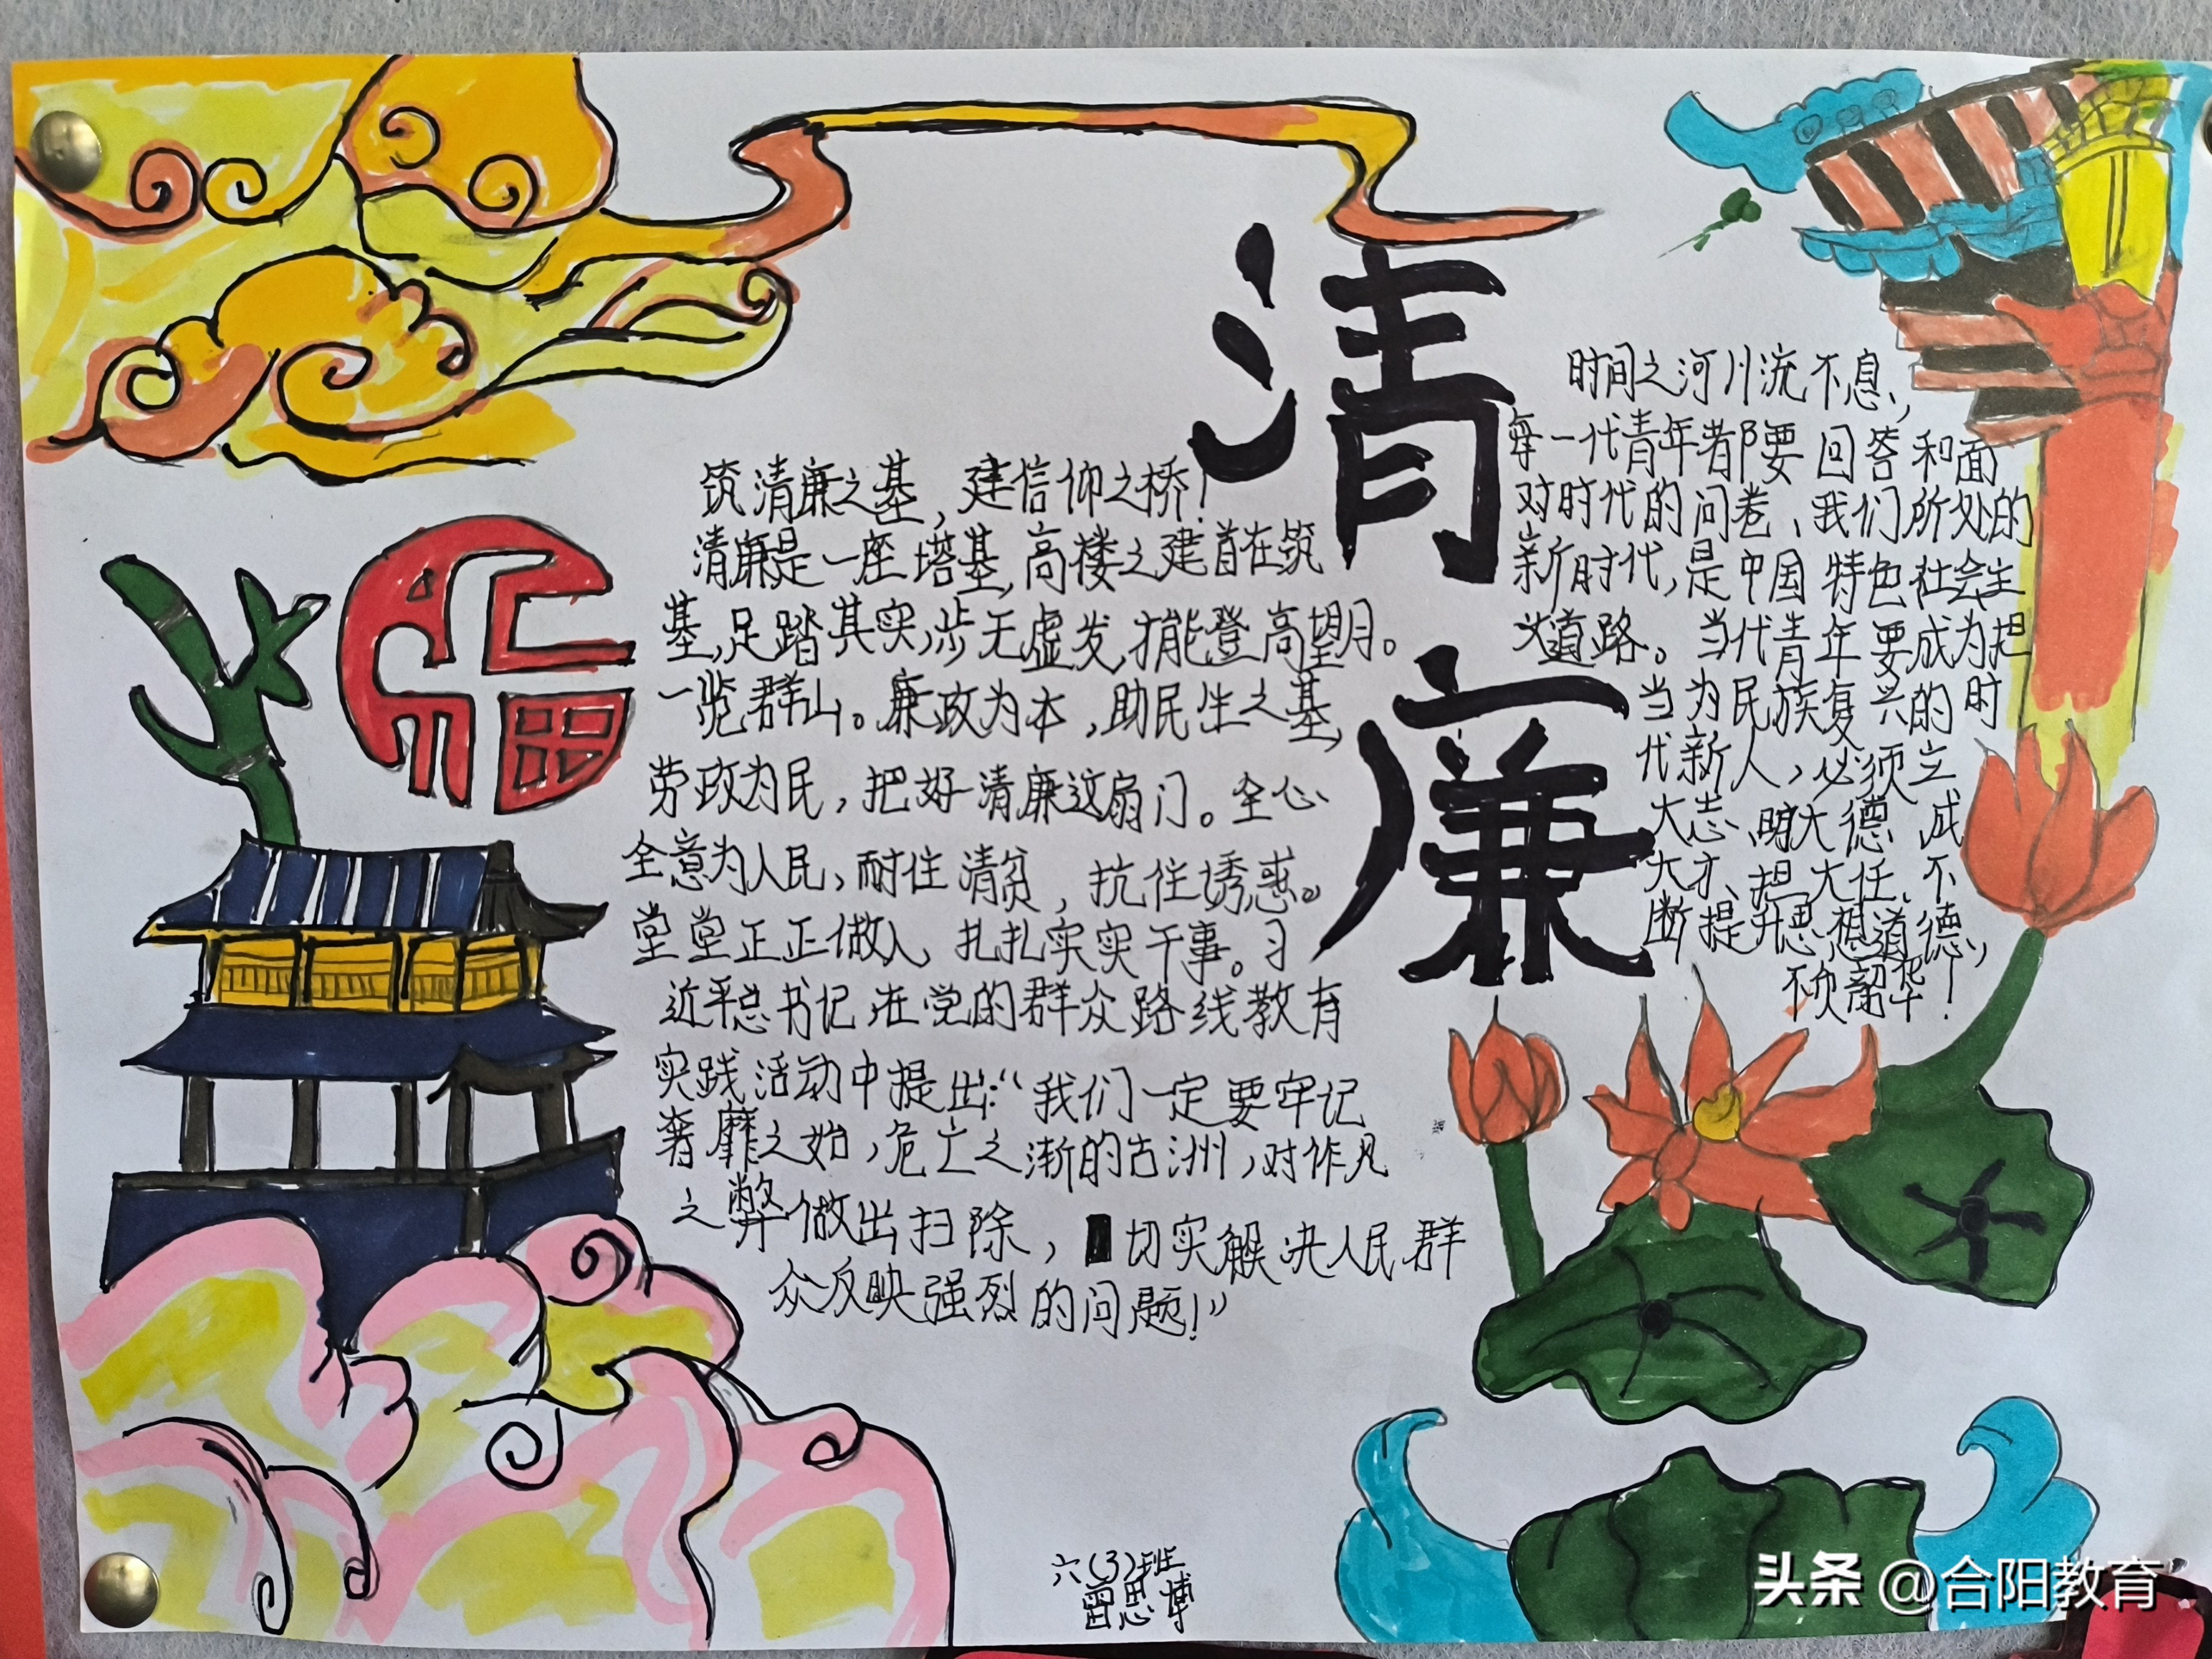 清廉
筑清廉之基，建信仰之桥！
清廉是一座塔基，高楼之建首在筑
基，足踏其实，步无虚发，才能登高望月。
一览群山。廉政为本，助民生之基，
劳政为民，把好清廉这扇门。全心
全意为人民，耐住清贫，抗住诱惑。
堂堂正正做人，扎扎实实干事。习
近平总书记在党的群众路线教育
实践活动中提出：“我们一定要牢记
奢靡之始，危亡之渐的古洲，对作凡
之弊做出扫除，切实解决人民群
众反映强烈的问题！”
时间之河川流不息，
每一代青年都要回答和面
对时代的问卷、我们所处的
新时代，是中国特色社会主
义道路。当代青年要成为担
当为民族复兴的时
代新人，必须立
大志、明大德、成
大才、担大任，不
断提升思想道德，
不负韶华！
六(3)班
雷思博
福
头条 @合阳教育